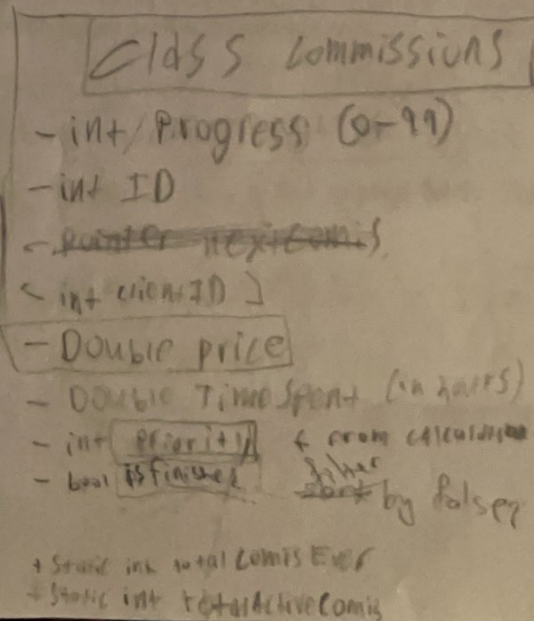 Class Commissions
- int Progress (0-99)
- int ID
- Pointer nextcomis
- int clientID ]
- Double price
- Double TimeSpent (in hours)
- int priority ← from calculation
- bool isfinished filter sort by false?
+ static int totalComisEver
+ static int totalActiveComis